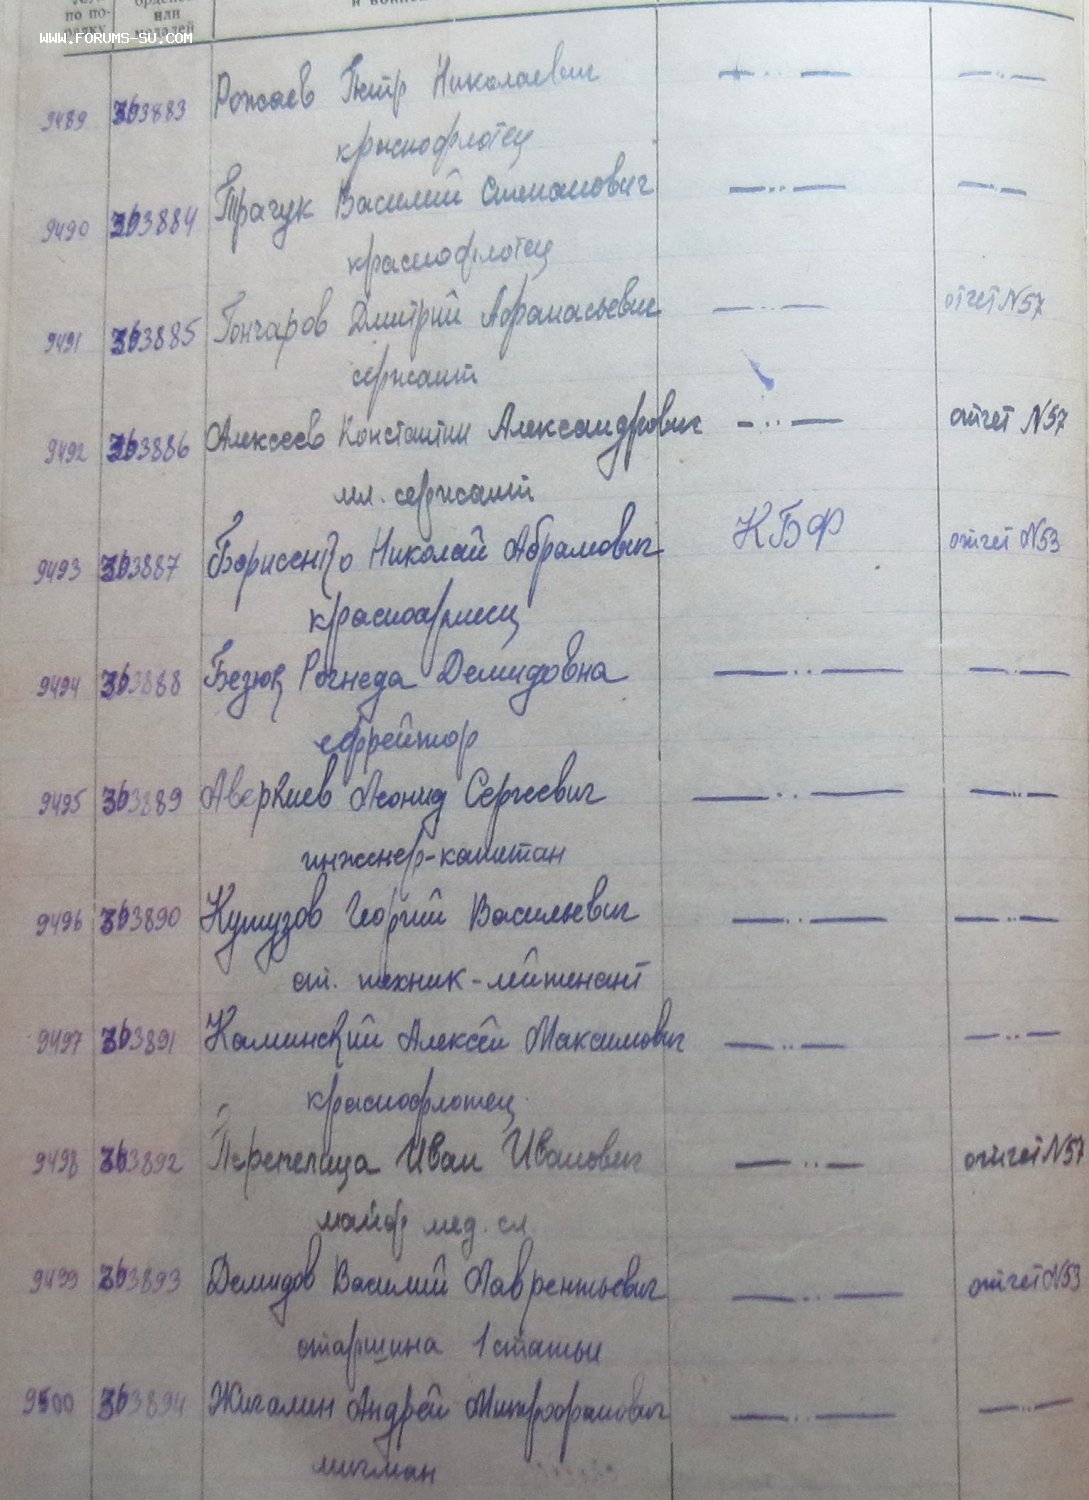 по по- или
рядку медалей
www.FORUMS-SU.COM
9489 363883 Рожаев Петр Николаевич — .. — — .. —
краснофлотец
9490 363884 Трачук Василий Степанович — .. — — .. —
краснофлотец
9491 363885 Гончаров Дмитрий Афанасьевич — .. — отчет N57
сержант
9492 363886 Алексеев Константин Александрович — .. — отчет N57
мл. сержант
9493 363887 Борисенко Николай Абрамович КБФ отчет N53
красноармеец
9494 363888 Безюк Рогнеда Демидовна — .. — — .. —
ефрейтор
9495 363889 Аверкиев Леонид Сергеевич — .. — — .. —
инженер-капитан
9496 363890 Кутузов Георгий Васильевич — .. — — .. —
ст. техник-лейтенант
9497 363891 Каминский Алексей Максимович — .. — — .. —
краснофлотец
9498 363892 Перепелица Иван Иванович — .. — отчет N57
майор мед. сл.
9499 363893 Демидов Василий Лаврентьевич — .. — отчет N53
старшина 1 статьи
9500 363894 Жигалин Андрей Митрофанович — .. — — .. —
мичман